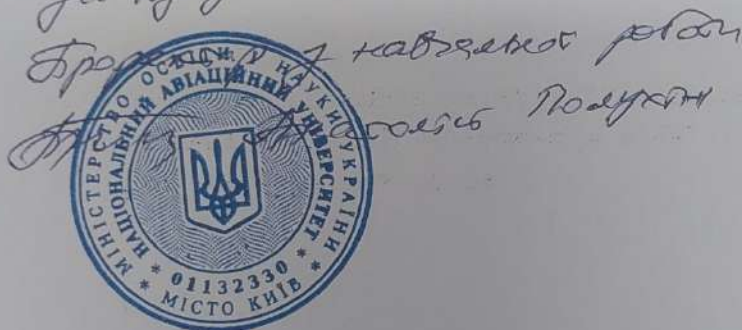 з навчальної роботи
Анатолій Полухін
МІНІСТЕРСТВО ОСВІТИ І НАУКИ УКРАЇНИ
НАЦІОНАЛЬНИЙ АВІАЦІЙНИЙ УНІВЕРСИТЕТ
* 01132330 *
* МІСТО КИЇВ *